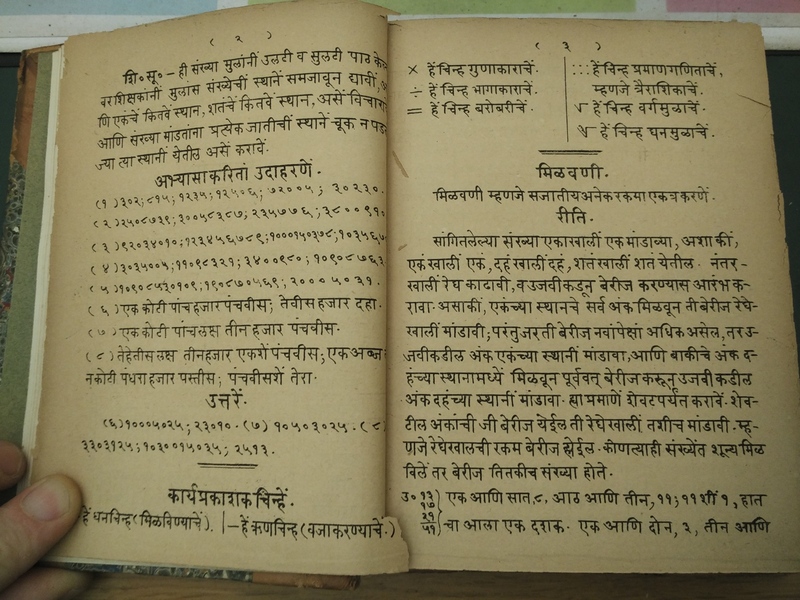 ( २ )
शि॰ सू॰ — ही संख्या मुलांनीं उलटी व सुलटी पाठ
वर शिक्षकांनीं मुलास संख्येचीं स्थानें समजावून द्यावीं,
णि एकंचें कितवें स्थान, शतंचें कितवें स्थान, असें विचारा
आणि संख्या मांडतांना प्रत्येक जातीचीं स्थानें चूक न पड
ज्या त्या स्थानीं येतील असें करावें.
अभ्यासाकरितां उदाहरणें.
(१) ३०२; ८१५; १२३५; १२५०६; ७२००५; ३०२३०.
(२) २५०८७३९; ३००५८३८७; २३५७७६; ३८००९१०
(३) ९२०३४०१०; १२३४५६७८९; १०००१५०३७८; १०३५६७
(४) ३०३५००५; ११०९८३२१; ३४००९८०; १०९०८७६३
(५) १०९०८५३०१०९; १९८७०५६९; २०००५०३१.
(६) एक कोटी पांच हजार पंचवीस; तेवीस हजार दहा.
(७) एक कोटी पांच लक्ष तीन हजार पंचवीस.
(८) तेहेतीस लक्ष तीनहजार एकशें पंचवीस; एक अब्ज
न कोटी पंधरा हजार पस्तीस; पंचवीसशें तेरा.
उत्तरें.
(६) १०००५०२५; २३०१०. (७) १०५०३०२५. (८)
३३०३१२५; १०३००१५०३५; २५१३.
कार्यप्रकाशक चिन्हें.
हें धनचिन्ह (मिळविण्याचें). | — हें ऋणचिन्ह (वजाकरण्याचें.)
( ३ )
× हें चिन्ह गुणाकाराचें.
÷ हें चिन्ह भागाकाराचें.
= हें चिन्ह बरोबरीचें.
: : : हें चिन्ह प्रमाणगणिताचें,
म्हणजे त्रैराशिकाचें.
√ हें चिन्ह वर्गमुळाचें.
∛ हें चिन्ह घनमुळाचें.
मिळवणी.
मिळवणी म्हणजे सजातीय अनेक रकमा एकत्र करणें.
रीति.
सांगितलेल्या संख्या एकाखालीं एक मांडाव्या, अशा कीं,
एकं खालीं एकं, दहं खालीं दहं, शतं खालीं शतं येतील. नंतर-
खालीं रेघ काढावी, व उजवीकडून बेरीज करण्यास आरंभ क-
रावा. असाकीं, एकंच्या स्थानचे सर्व अंक मिळवून ती बेरीज रेघे-
खालीं मांडावी; परंतु जर ती बेरीज नवांपेक्षां अधिक असेल, तर उ-
जवीकडील अंक एकंच्या स्थानीं मांडावा, आणि बाकीचे अंक द-
हंच्या स्थानामध्यें मिळवून पूर्ववत् बेरीज करून उजवीकडील
अंक दहंच्या स्थानीं मांडावा. ह्या प्रमाणें शेवटपर्यंत करावें. शेव-
टील अंकांची जी बेरीज येईल ती रेघेखालीं तशीच मांडावी. म्ह-
णजे रेघेखालची रकम बेरीज होईल. कोणत्याही संख्येंत शून्य मिळ
विलें तर बेरीज तितकीच संख्या होते.
उ॰ १३ एक आणि सात, ८, आठ आणि तीन, ११; ११ शीं १, हात
१७
२१ चा आला एक दशक. एक आणि दोन, ३, तीन आणि
५१